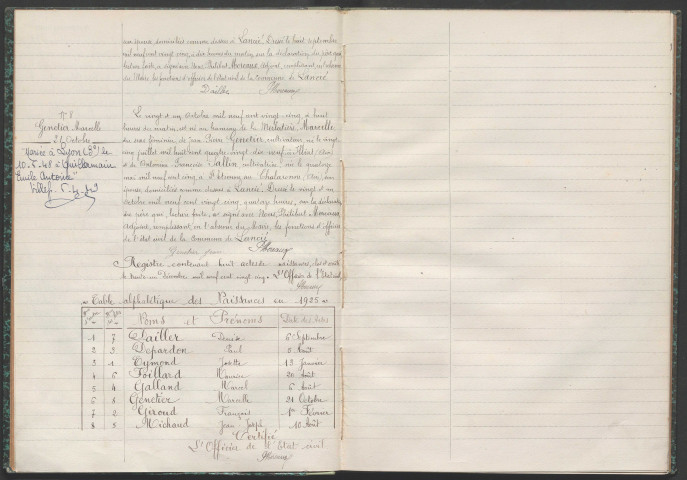 son épouse, domiciliés comme dessus à Lancié. Dressé le huit septembre
mil neuf cent vingt cinq, à dix heures du matin, sur la déclaration du père qui,
lecture faite, a signé avec Nous, Philibert Moreaux, adjoint, remplissant, en l'absence
du Maire les fonctions d'officier de l'état civil de la Commune de Lancié
Dailler Moreaux
N° 8
Genetier Marcelle
21 Octobre
"Mariée à Lyon (3e) le
10.5.48 à Guillermain
Emile Antoine"
Villef.
Le vingt et un Octobre mil neuf cent vingt cinq, à huit
heures du matin, est né au hameau de la Merlatière Marcelle
du sexe féminin, de Jean Pierre Genetier cultivateur, né le vingt
cinq juillet mil huit cent quatre vingt dix neuf à
et de Antonine Françoise Sallin cultivatrice, née le quatorze
mai mil neuf cent cinq à St Etienne sur Chalaronne (Ain), son
épouse, domiciliés comme dessus à Lancié. Dressé le vingt et un
Octobre mil neuf cent vingt cinq, quatorze heures, sur la déclaration
du père qui, lecture faite, a signé avec Nous, Philibert Moreaux,
Adjoint, remplissant, en l'absence du Maire, les fonctions d'officier
de l'état civil de la Commune de Lancié
Genetier Moreaux
Registre contenant huit actes de naissances, clos et arrêté
le trente un Décembre mil neuf cent vingt cinq. L'Officier de l'Etat civil
Moreaux
Table alphabétique des Naissances en 1925
Noms et Prénoms Date des Actes
1 7 Dailler Denise 6 Septembre
2 3 Depardon Paul
3 1 Eymond Josette 13 Janvier
4 6 Foillard Maurice 20 Août
5 4 Galland Marcel 6 Août
6 8 Genetier Marcelle 21 Octobre
7 2 Giroud François 1er Février
8 5 Michaud Jean Joseph 10 Août
Certifié
L'Officier de l'Etat civil
Moreaux